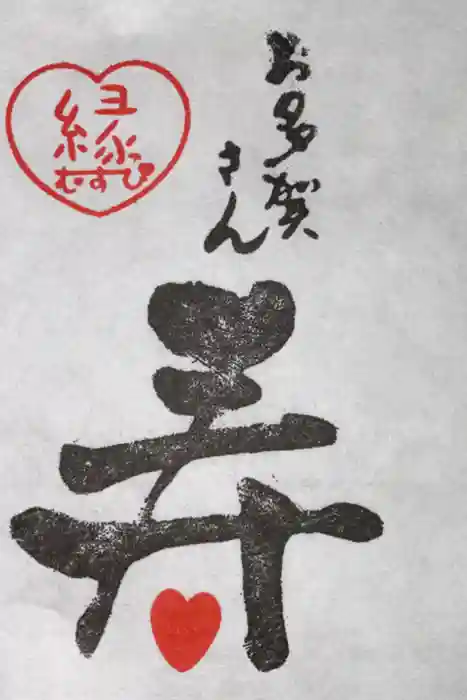 お多賀
さん
縁
むすび
寿